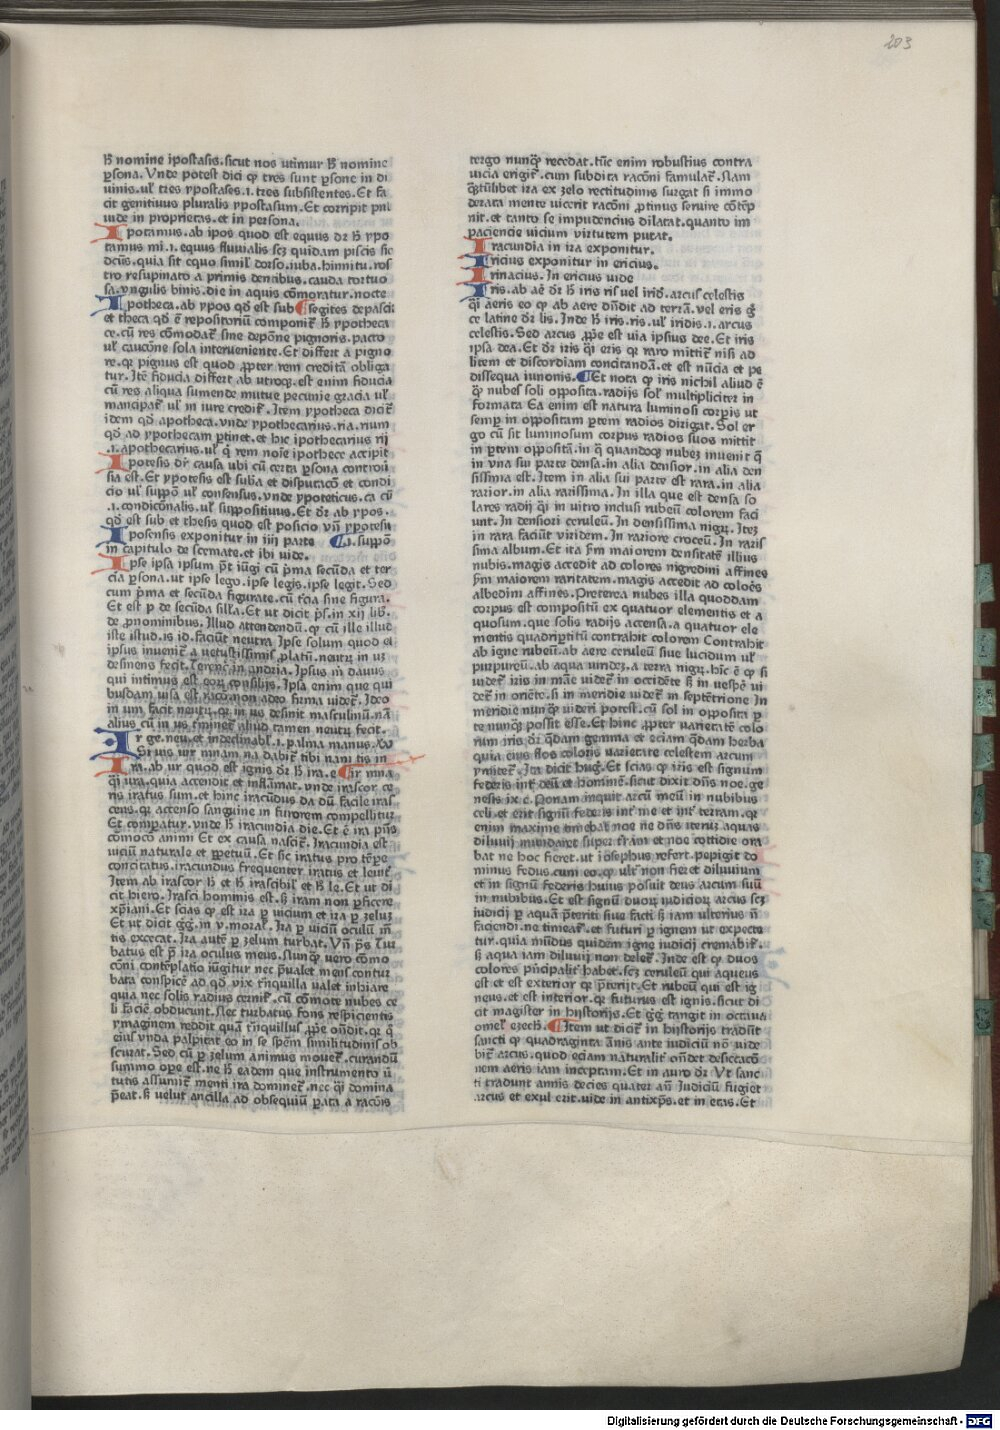 203
hͦ nomine ipostasis.sicut nos utimur hͦ nomine
ꝑsona. Vnde potest dici ꝙ tres sunt ꝑsone in di
uinis.ul' tres ypostases.i.tres subsistentes. Et fa
cit genitiuus pluralis ypostasum. Et corripit pnl
uide in proprietas.et in persona.
Ipotamus.ab ipos quod est equus dr̄ hͦ ypo
tamus mi.i.equus fluuialis scꝫ quidam piscis sic
dcūs.quia sit equo simil' dorso.iuba.hinnitu.ros
tro resupinato a primis dentibus.cauda tortuo
sa.vngulis binis.die in aquis cōmoratur.nocte
Ipotheca.ab ypos qd̄ est sub ¶segites depasci
et theca qd̄ ē repositoriū componit̄ hͦ ypotheca
ce.cū res cōmodat̄ sine depōne pignoris.pacto
ul' caucōne sola interueniente. Et differt a pigno
re.qꝛ pignus est quod ꝓpter rem creditā obliga
tur. Itē fiducia differt ab utroqꝫ.est enim fiducia
cū res aliqua sumende mutue pecunie gracia ul'
mancipat̄ ul' in iure credit̄. Item ypotheca dicit̄
idem qd̄ apotheca.vnde ypothecarius.ria.rium
qd̄ ad ypothecam ꝑtinet.et hic ipothecarius rij
.i.apothecarius.ul' q̄ rem noīe ipothece accipit
Ipotesis dr̄ causa ubi cū certa ꝑsona controu
sia est. Et ypotesis est suba et disputacō et condi
cio ul' suppō ul' consensus.vnde ypoteticus.ca cū
.i.condicōnalis.ul' suppositiuus. Et dr̄ ab ypos.
qd̄ est sub et thesis quod est posicio vn̄ ypotesis
Iposensis exponitur in iiij parte ¶.i.suppō
in capitulo de scemate.et ibi uide.
Ipse ipsa ipsum pt̄ iūgi cū pͥma secūda et ter
cia ꝑsona.ut ipse lego.ipse legis.ipse legit. Sed
cum pͥma et secūda figurate.cū tͨia sine figura.
Et est p̄ de secūda silla. Et ut dicit pͥs.in xij lib.
de ꝓnominibus. Illud attendendū.ꝙ cū ille illud
iste istud.is id.faciūt neutra Ipse solum quod et
ipsus inuenit̄ a uetustissimis ꝓlatū.neutꝝ in uꝫ
desinens fecit. Terenc̄ in andria. Ipsus m̄ dauus
qui intimus est eoꝝ consilijs. Ipsa enim que qui
busdam uisa est racō non adeo firma uidet̄. Ideo
in um facit neutꝝ.qꝛ in us desinit masculinū.nā
alius cū in us tͥminet̄ aliud tamen neutꝝ fecit.
Ir ge.neu.et indeclinabl'.i.palma manus.Vū
Si uis uir mnam na dabit̄ tibi nani tis in
Ira.ab ur quod est ignis dr̄ hͦ ira.e ¶ir mna
qͥ ura.quia accendit et inflāmat.vnde irascor ce
ris iratus sum.et hinc iracūdus da dū. facile iras
cens.qꝛ accenso sanguine in furorem compellitur
Et comparatur.vnde hͦ iracundia die. Et ē ira pn̄s
cōmocō animi Et ex causa nascit̄. Iracundia est
uiciū naturale et ꝑpetuū. Et sic iratus pro tꝑe
concitatus.iracundus frequenter iratus et leuit̄.
Item ab irascor hͦ et hͦ irascibil' et hͦ le. Et ut di
cit hiero. Irasci hominis est.sꝫ iram non ꝑficere
xpiani. Et scias ꝙ est ira ꝑ uicium et ira ꝑ zeluꝫ
Et ut dicit gg̃.in v.moral'. Ira ꝑ uiciū oculū m̄
tis excecat. Ira autē ꝑ zelum turbat. Vn̄ pͥs Tur
batus est p̄ ira oculus meus. Nunqꝫ uero cōmo
cōni contēplatio iūgitur nec p̄ualet mens contur
bata conspicē ad qd̄ vix tn̄quilla ualet inhiare
quia nec solis radius cernit̄.cū cōmote nubes ce
li faciē obducunt. Nec turbatus fons respicientis
ymaginem reddit quā tn̄quillus ꝓpe ondit.qꝛ q̄
eius vnda palpitat eo in se spēm similitudinis ob
scurat. Sed cū ꝑ zelum animus mouet̄.curandū
summo oꝑe est.ne hͦ eadem que instrumento ū
tutis assumit̄ menti ira dominet̄.nec qͥ domina
p̄eat.sꝫ velut ancilla ad obsequiū ꝑata a racōis
tergo nunqꝫ recedat.tūc enim robustius contra
uicia erigit̄.cum subdita racōni famulat̄. Nam
qꝫtūlibet ira ex zelo rectitudinis surgat si immo
derata mente uicerit racōni ꝓtinus seruire cōtēp
nit.et tanto se impudencius dilatat.quanto im
paciencie uicium virtutem putat.
Iracundia in ira exponitur.
Iricius exponitur in ericius.
Irinacius. In ericus uide
Iris.ab aē dr̄ hͦ iris ris uel irid̄.arcus celestis
qͥ aeris eo ꝙ ab aere dn̄dit ad terrā.vel eris g̃
ce latine dr̄ lis. Inde hͦ iris.ris.ul' iridis.i.arcus
celestis. Sed arcus ꝓpe est uia ipsius dee. Et iris
ipsa dea. Et dr̄ iris qͥ eris qꝛ raro mittit̄ nisi ad
litem et discordiam concitandā.et est nūcia et pe
dissequa iunonis. ¶Et nota ꝙ iris nichil aliud ē
ꝙ nubes soli opposita.radijs sol' multipliciter in
formata Ea enim est natura luminosi corpis ut
semꝑ in oppositam ꝑtem radios dirigat. Sol er
go cū sit luminosum corpus radios suos mittit
in ꝑtem oppositā.in q̄ quandoqꝫ nubeꝫ inuenit q̄
in vna sui parte densa.in alia densior.in alia den
sissima est. Item in alia sui parte est rara.in alia
rarior.in alia rarissima. In illa que est densa so
lares radij qͥ in uitro inclusi rubeū colorem faci
unt. In densiori ceruleū. In densissima nigꝝ. Iteꝫ
in rara faciūt viridem. In rariore croceū. In raris
sima album. Et ita ẜm maiorem densitatē illius
nubis.magis accedit ad colores nigredini affines
ẜm maiorem raritatem.magis accedit ad coloēs
albedini affines. Preterea nubes illa quoddam
corpus est compositū ex quatuor elementis et a
quosum.que solis radijs accensa.a quatuor ele
mentis quadriꝑtitū contrahit colorem Contrahit
ab igne rubeū.ab aere ceruleū siue lucidum ul'
purpureū.ab aqua uirideꝫ.a terra nigꝝ.hīc ē ꝙ si
uidet̄ iris in māe uidet̄ in occidēte sꝫ in uespē ui
det̄ in oriēte.si in meridie uidet̄ in septētrione In
meridie nunqꝫ uideri potest.cū sol in opposita ꝑ
te nunqꝫ possit esse. Et hinc ꝓpter varietatē colo
rum iris dr̄ qͣdam gemma et eciam qͣdam herba
quia eius flos coloris varietate celestem arcum
ymitet̄. Ita dicit hug̃. Et scias ꝙ iris est signum
federis intͥ deū et hominē.sicut dixit dn̄s noe.ge
nesis ix c. Ponam inquit arcū meū in nubibus
celi.et erit signū federis intͥ me et intͥ terram.qꝛ
enim maxime timebat noe ne dn̄s iteruꝫ aquas
diluuij mundaret super tͥram et noe cottidie ora
bat ne hoc fieret.ut iosephus refert.pepigit do
minus fedus cum eo.ꝙ ultͥ non fieret diluuium
et in signū federis huius posuit deus arcum suū
in nubibus. Et est signū duoꝝ iudicioꝝ arcus scꝫ
iudicij ꝑ aquā p̄teriti siue facti sꝫ iam ulterius n̄
faciendi.ne timeat̄.et futuri ꝑ ignem ut expecte
tur.quia mūdus quidem igne iudicij cremabit̄.
sꝫ aqua iam diluuij non delet̄. Inde est ꝙ duos
colores pͥncipalit̄ habet.scꝫ ceruleū qui aqueus
est et est exterior qꝛ p̄terijt. Et rubeū qui est ig
neus.et est interior.qꝛ futurus est ignis.sicut di
cit magister in hystorijs. Et gg̃ tangit in octaua
omel' ezech̄. ¶Item ut dicit̄ in hystorijs tradūt
sancti ꝙ quadraginta ānis ante iudiciū nō uide
bit̄ arcus.quod eciam naturalit̄ ondet desiccacō
nem aeris iam inceptam. Et in auro dr̄ Vt sanc
ti tradunt annis decies quater an̄ Iudiciū fugiet
arcus et exul erit.uide in antixps.et in etas. Et
Digitalisierung gefördert durch die Deutsche Forschungsgemeinschaft - DFG